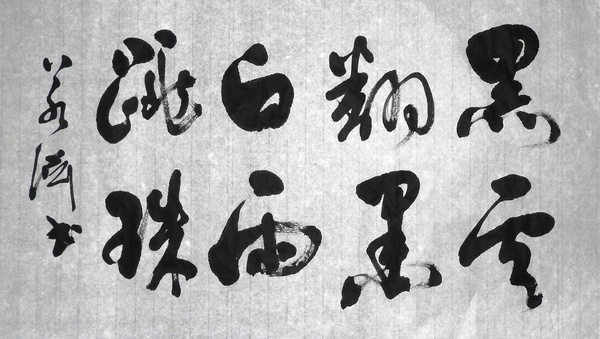 黑云
翻墨
白雨
跳珠
书